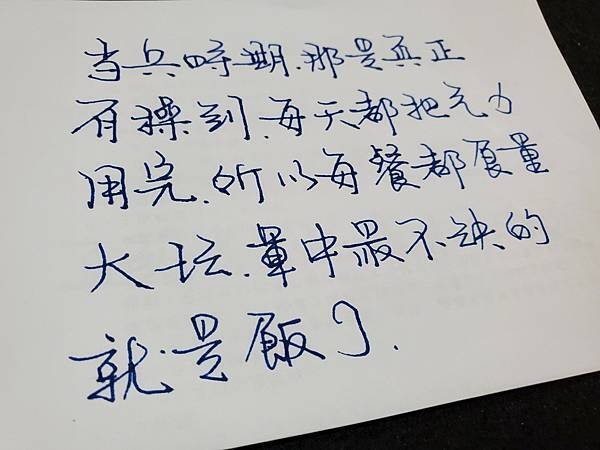 当兵時期.那是真正
有操到.每天都把元力
用完.所以每餐都食量
大坛.軍中最不缺的
就是飯了.